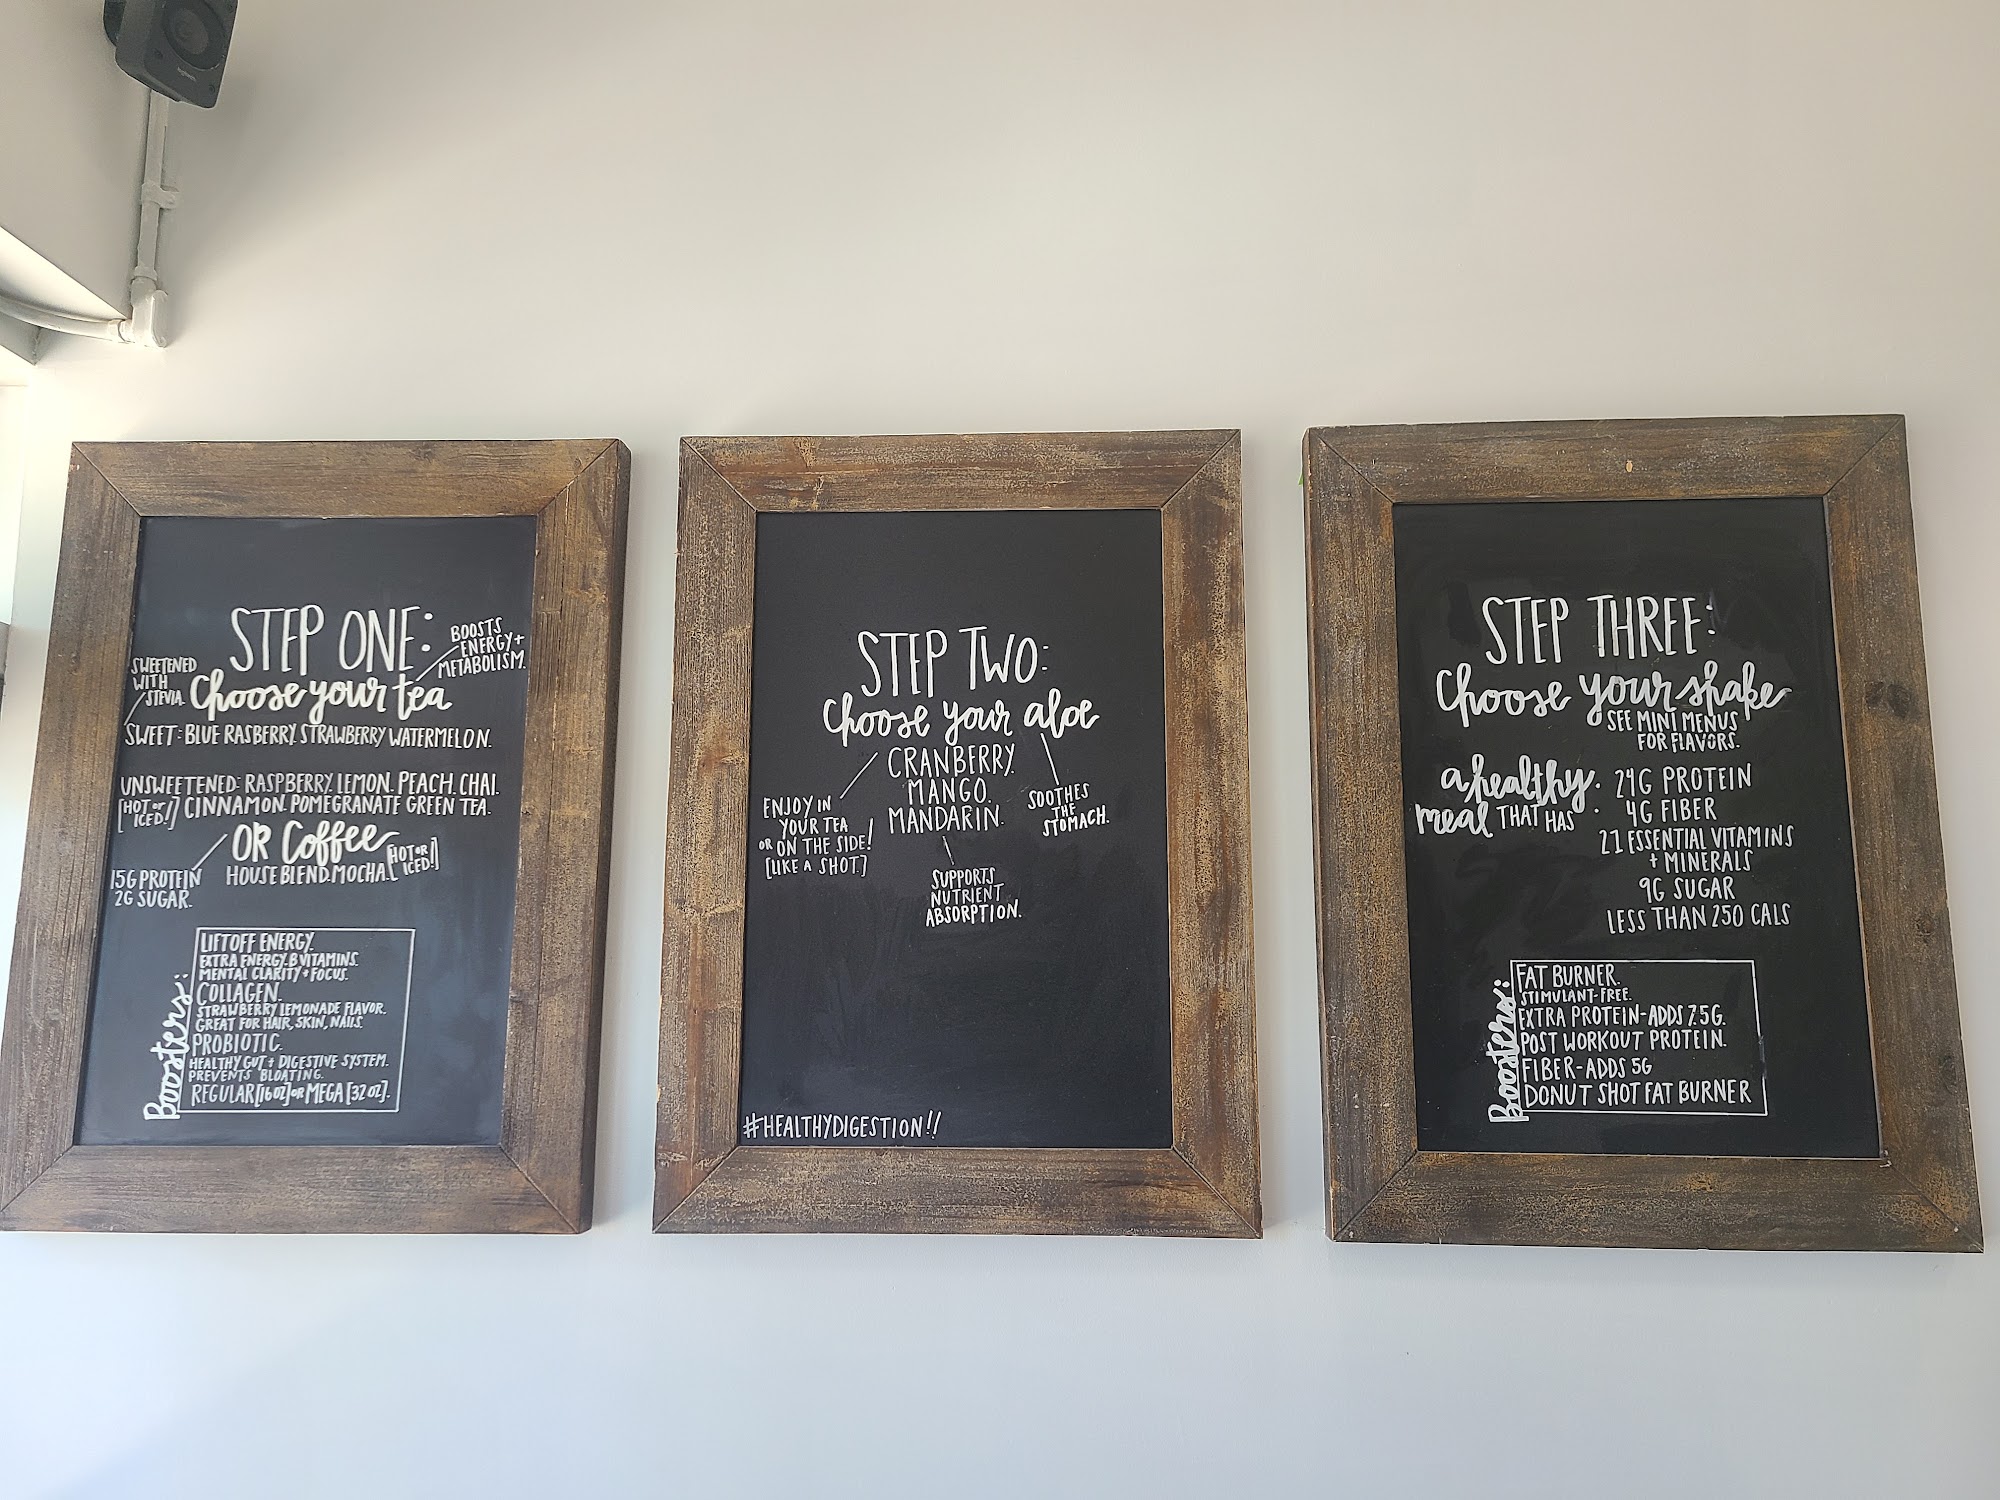 STEP ONE:
BOOSTS
ENERGY+
METABOLISM.
SWEETENED
WITH
STEVIA.
Choose your tea
SWEET: BLUE RASBERRY. STRAWBERRY WATERMELON.
UNSWEETENED: RASPBERRY. LEMON. PEACH. CHAI.
[HOT or ICED!] CINNAMON. POMEGRANATE GREEN TEA.
OR Coffee
HOUSE BLEND. MOCHA. [HOT OR ICED!]
15G PROTEIN
2G SUGAR.
Boosters:
LIFTOFF ENERGY.
EXTRA ENERGY. B VITAMINS.
MENTAL CLARITY + FOCUS.
COLLAGEN.
STRAWBERRY LEMONADE FLAVOR.
GREAT FOR HAIR, SKIN, NAILS.
PROBIOTIC.
HEALTHY GUT + DIGESTIVE SYSTEM.
PREVENTS BLOATING.
REGULAR [16 OZ] OR MEGA [32 OZ].
STEP TWO:
Choose your aloe
CRANBERRY.
MANGO.
MANDARIN.
ENJOY IN
YOUR TEA
OR ON THE SIDE!
[LIKE A SHOT.]
SOOTHES
THE
STOMACH.
SUPPORTS
NUTRIENT
ABSORPTION.
#HEALTHYDIGESTION!!
STEP THREE:
Choose your shake
SEE MINI MENUS
FOR FLAVORS.
a healthy
meal THAT HAS:
24G PROTEIN
4G FIBER
21 ESSENTIAL VITAMINS
+ MINERALS
9G SUGAR
LESS THAN 250 CALS
Boosters:
FAT BURNER.
STIMULANT-FREE.
EXTRA PROTEIN-ADDS 7.5G.
POST WORKOUT PROTEIN.
FIBER-ADDS 5G
DONUT SHOT FAT BURNER